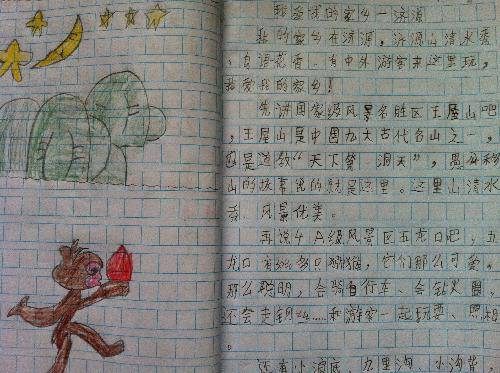 我爱我的家乡—济源
我的家乡在济源,济源山清水秀
、鸟语花香、有中外游客来这里玩,
我爱我的家乡!
先讲国家级风景名胜区王屋山吧
,王屋山是中国九大古代名山之一,
也是道教“天下第一洞天”,愚公移
山的故事说的就是这里。这里山清水
秀、风景优美。
再说4A级风景区五龙口吧,五
龙口有3000多只猕猴,它们那么可爱,
那么聪明,会骑自行车、会钻火圈、
还会走钢丝……和游客一起玩耍、照相
。
还有小浪底、九里沟、小沟背,